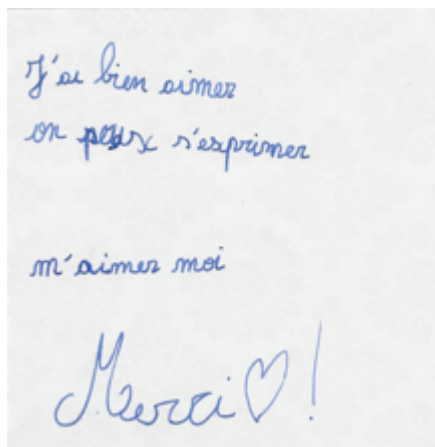 J'ai bien aimer
on peux s'exprimer
m'aimer moi
Merci ♡ !